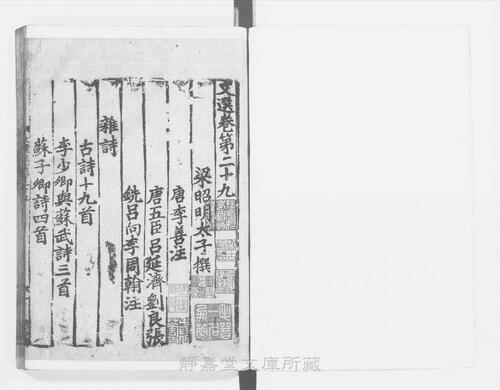 文選卷第二十九
梁昭明太子撰
唐李善注
唐五臣呂延濟劉良張
銑呂向李周翰注
雜詩
古詩十九首
李少卿與蘇武詩三首
蘇子卿詩四首
靜嘉堂文庫所藏